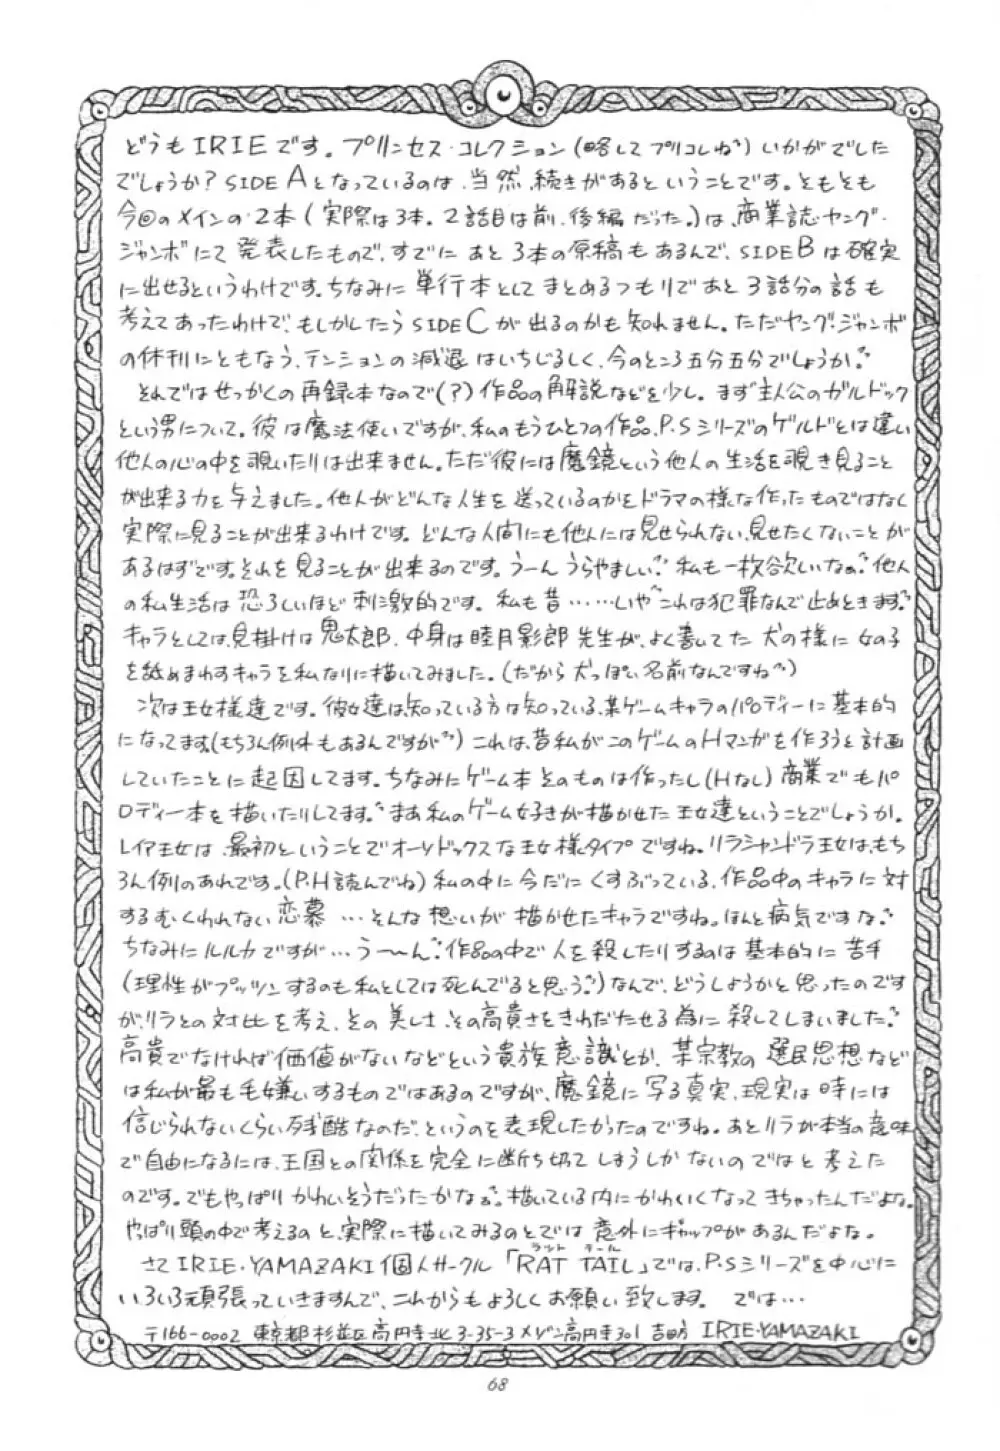 どうもIRIEです。プリンセス・コレクション(略してプリコレね)いかがでした
でしょうか?SIDE Aとなっているのは、当然、続きがあるということです。そもそも
今回のメインの2本(実際は3本。2話目は前、後編だった。)は、商業誌・ヤング・
ジャンボにて発表したもので、すでにあと3本の原稿もあるんで、SIDE Bは確実
に出せるというわけです。ちなみに単行本としてまとめるつもりであと3話分の話も
考えてあったわけで、もしかしたらSIDE Cが出るのかも知れません。ただヤング・ジャンボ
の休刊にともなう、テンションの減退はいちじるしく、今のところ五分五分でしょうか。
それではせっかくの再録本なので(?)作品の解説などを少し。まず主人公のガルドック
という男について。彼は魔法使いですが、私のもうひとつの作品、P.Sシリーズのゲルドとは違い
他人の心の中を覗いたりは出来ません。ただ彼には魔鏡という他人の生活を覗き見ること
が出来る力を与えました。他人がどんな人生を送っているのかをドラマの様な作ったものではなく
実際に見ることが出来るわけです。どんな人間にも他人には見せられない、見せたくないことが
あるはずです。それを見ることが出来るのです。うーんうらやましい。私も一枚欲いなぁ。他人
の私生活は恐ろしいほど刺激的です。私も昔……いやこれは犯罪なんで止めときます。
キャラとしては、見掛けは鬼太郎、中身は睦月影郎先生が、よく書いてた犬の様に女の子
を舐めまわすキャラを私なりに描いてみました。(だから犬っぽい名前なんですね)
次は王女様達です。彼女達は、知っている方は知っている、某ゲームキャラのパロディーに基本的
になってます。(もちろん例外もあるんですが)これは、昔私がこのゲームのHマンガを作ろうと計画
していたことに起因してます。ちなみにゲーム本そのものは作ったし(Hなし)商業でもパ
ロディー本を描いたりしてます。まあ私のゲーム好きが描かせた王女達ということでしょうか。
レイア王女は、最初ということでオーソドックスな王女様タイプですね。リラシャンドラ王女は、もち
ろん例のあれです。(P.H読んでね)私の中に今だにくすぶっている、作品中のキャラに対
するむくわれない恋慕…そんな想いが描かせたキャラですね。ほんと病気ですな。
ちなみにルルカですが…う〜〜ん。作品の中で人を殺したりするのは基本的に苦手
(理性がプッツンするのも私としては死んでると思う。)なんで、どうしようかと思ったのです
が、リラとの対比を考え、その美しさ、その高貴さをきわだたせる為に殺してしまいました。
高貴でなければ価値がないなどという貴族意識とか、某宗教の選民思想など
は私が最も毛嫌いするものではあるのですが、魔鏡に写る真実、現実は時には
信じられないくらい残酷なのだ、というのを表現したかったのですね。あとリラが本当の意味
で自由になるには、王国との関係を完全に断ち切ってしまうしかないのではと考えた
のです。でもやっぱりかわいそうだったかなぁ。描いている内にかわいくなってきちゃったんだよな。
やっぱり頭の中で考えるのと、実際に描いてみるのとでは意外にギャップがあるんだよな。
さてIRIE・YAMAZAKI個人サークル「RAT TAIL」では、P.Sシリーズを中心に
ラット テール
いろいろ頑張っていきますんで、これからもよろしくお願い致します。では…
〒166-0002 東京都杉並区高円寺北3-35-3メゾン高円寺301 吉田方 IRIE・YAMAZAKI
68